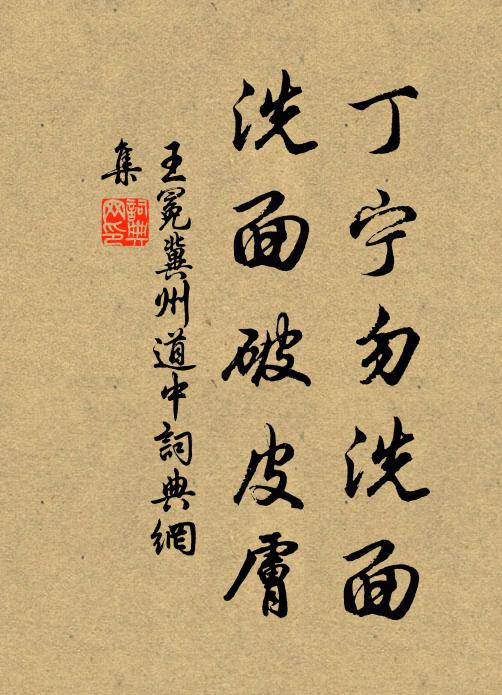 丁宁勿洗面
洗面破皮膚
王冕冀州道中詞典網
集
詞典網印